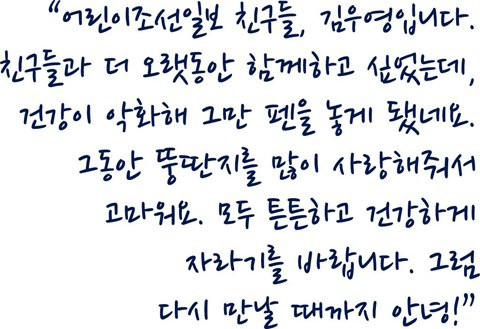 “어린이조선일보 친구들, 김우영입니다.
친구들과 더 오랫동안 함께하고 싶었는데,
건강이 악화해 그만 펜을 놓게 됐네요.
그동안 뚱딴지를 많이 사랑해줘서
고마워요. 모두 튼튼하고 건강하게
자라기를 바랍니다. 그럼
다시 만날 때까지 안녕!”